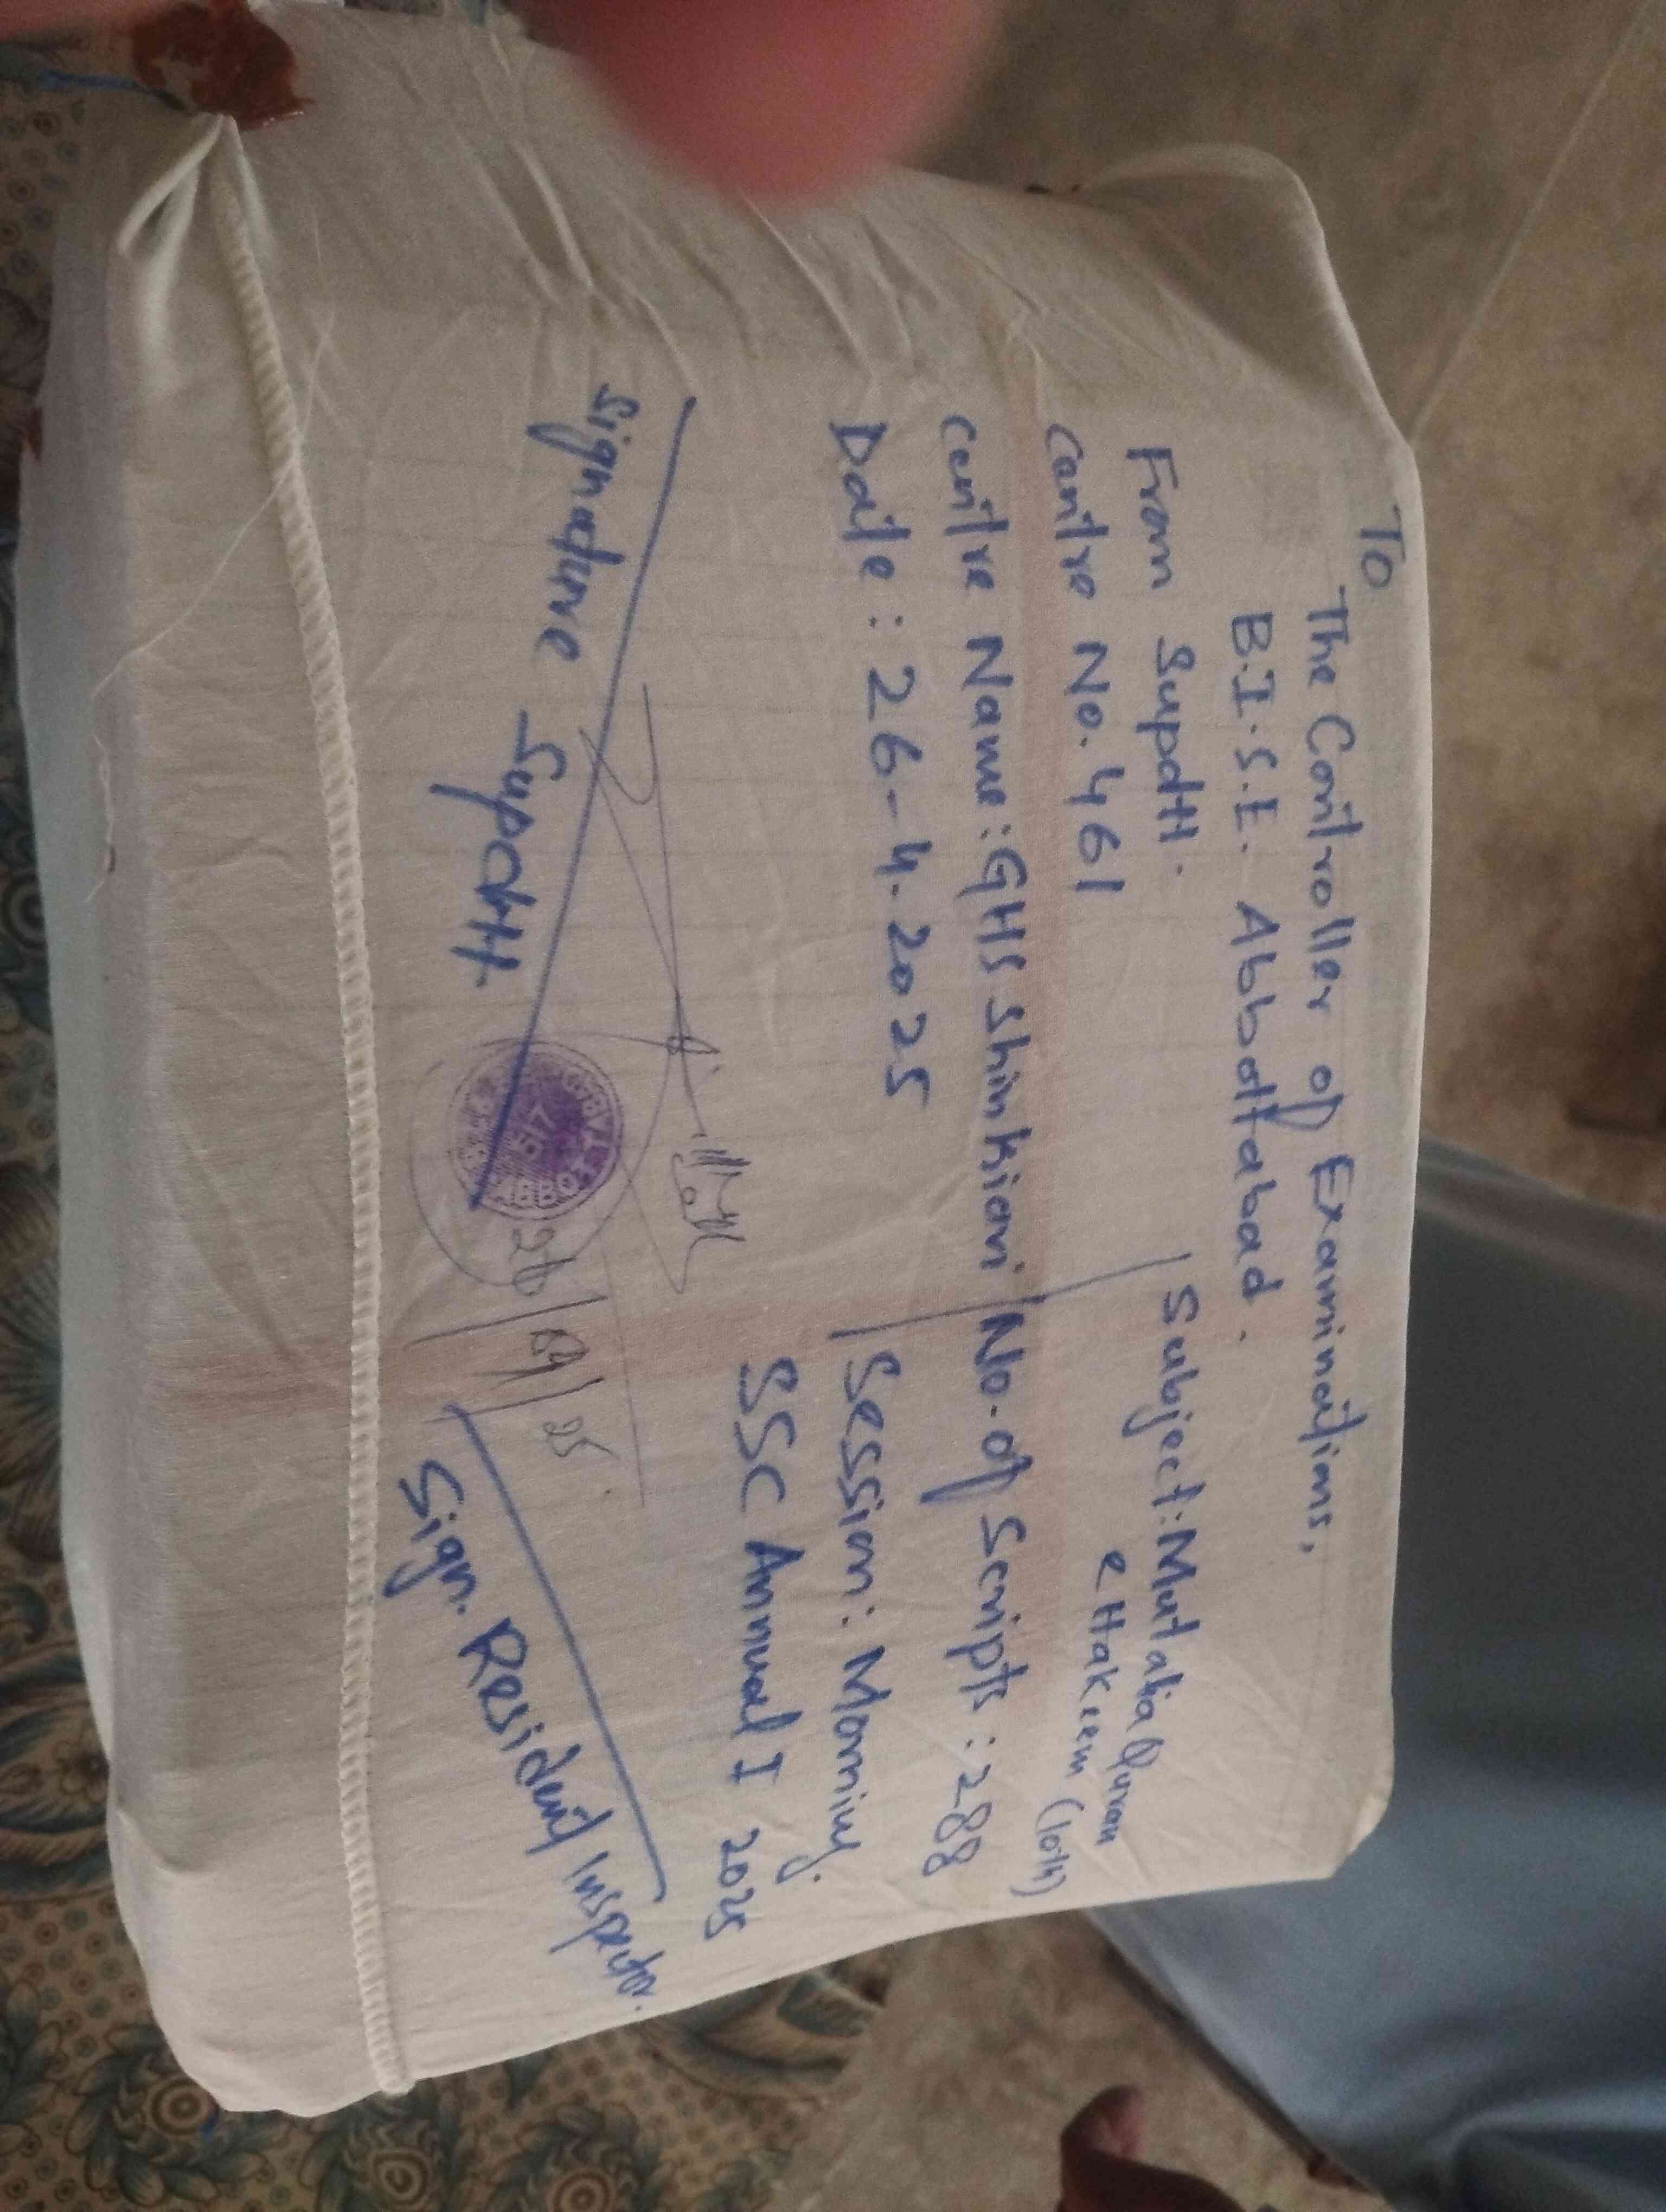 To
The Controller of Examinations,
B.I.S.E. Abbottabad.
From Supdtt.
Centre No. 461
Centre Name: GHS Shinkiari
Date: 26-4.2025
Subject: Mutalia Quran
e Hakeem (10th)
No. of Scripts: 288
Session: Morning.
SSC Annual I 2025
Signature Supdtt.
517
26/04/25.
Sign. Resident Inspector.